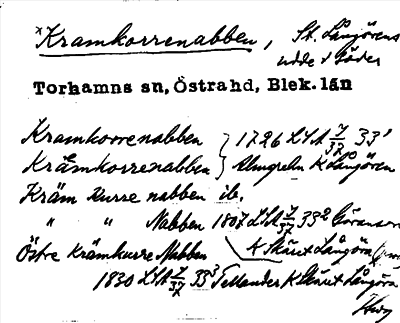 *Kramkorrenabben, St. Långörens
udde i Söder
Torhamns sn, Östra hd, Blek. län
Kramkorrenabben } 1726 LSA 7/37 33¹
Kråmkorrenabben } Almgrehn K Långören
Kräm Kurre nabben ib.
" " Nabben 1807 LSA 7/37 33² Göransson
Östre Krämkurre Nabben K Skäret Långöra
1830 LSA 7/37 33³ Tellander K Skäret Långöra